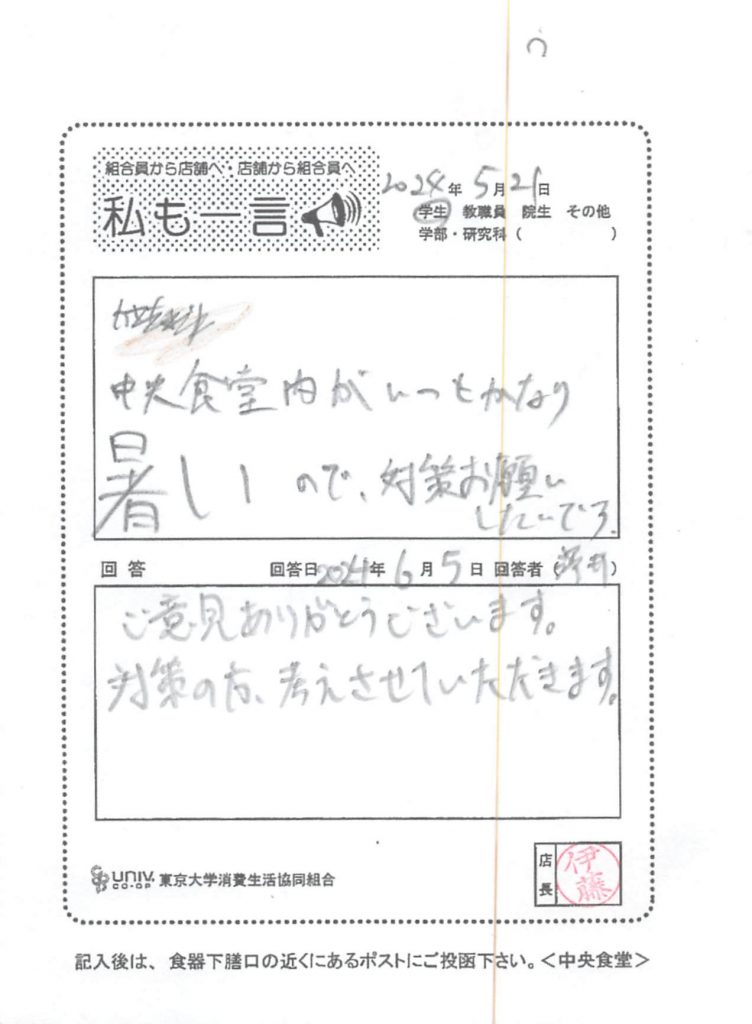 組合員から店舗へ・店舗から組合員へ
私も一言
2024年 5月21日
学生 教職員 院生 その他
学部・研究科（　　　　）
中央食堂内がいつもかなり
暑いので、対策お願い
したいです。
回答 回答日2024年6月5日 回答者（　　）
ご意見ありがとうございます。
対策の方、考えさせていただきます。
UNIV. CO-OP 東京大学消費生活協同組合
店長 伊藤
記入後は、食器下膳口の近くにあるポストにご投函下さい。＜中央食堂＞